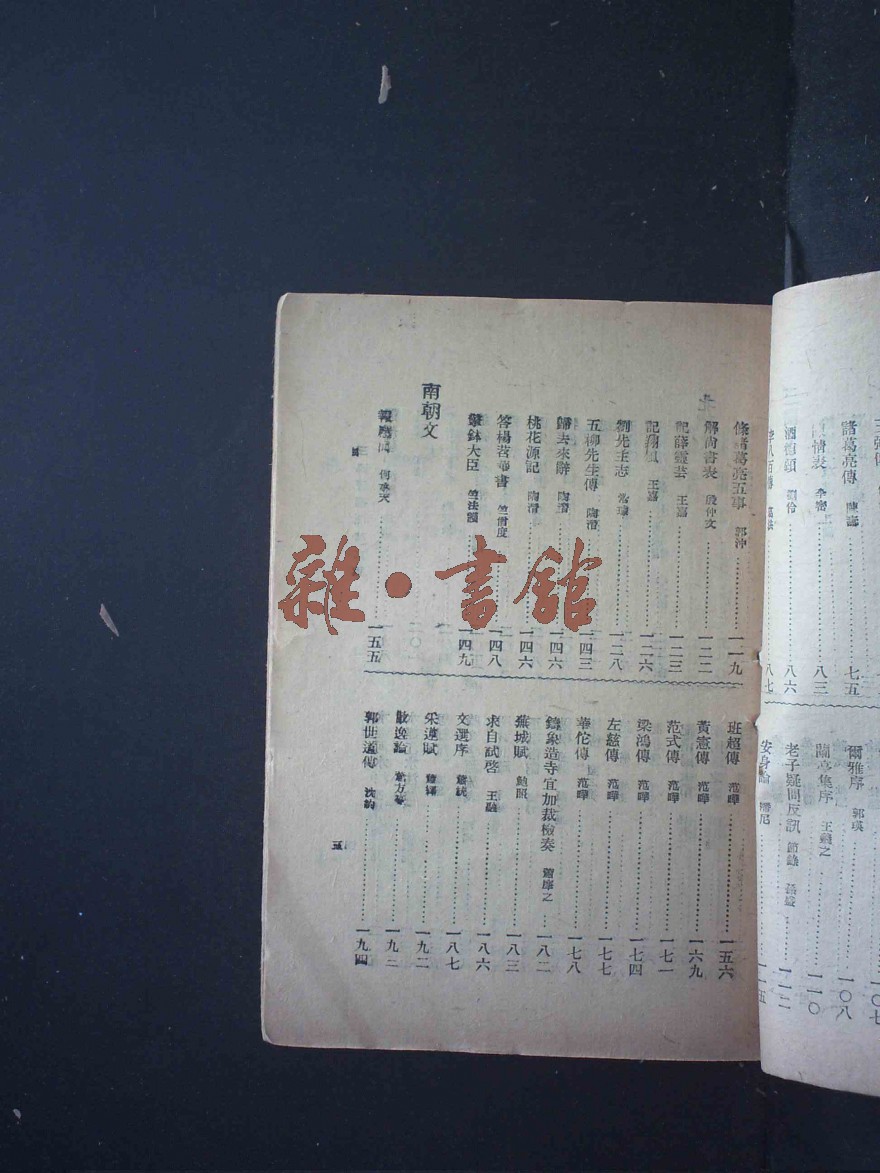 諸葛亮傳 陳壽 七五
情表 李密 八三
酒德頌 劉伶 八六
八七
爾雅序 郭璞 一〇八
蘭亭集序 王羲之 一一〇
老子疑問反訊 節錄 孫盛 一一二
安身論
條諸葛亮五事 郭沖 一一九
解尚書表 殷仲文 一二二
記薛靈芸 王嘉 一二三
記翔風 王嘉 一二六
劉先主志 常璩 一二八
五柳先生傳 陶潛 一四三
歸去來辭 陶潛 一四六
桃花源記 陶潛 一四六
答楊苕華書 竺僧度 一四八
擎鉢大臣 竺法護 一四九
南朝文
何承天 一五五
班超傳 范曄 一五六
黃憲傳 范曄 一六九
范式傳 范曄 一七一
梁鴻傳 范曄 一七四
左慈傳 范曄 一七七
華佗傳 范曄 一七八
鑄象造寺宜加裁檢奏 蕭摩之 一八二
蕪城賦 鮑照 一八三
求自試啓 王融 一八六
文選序 蕭統 一八七
采蓮賦 蕭繹 一九二
散逸論 蕭方等 一九二
郭世通傳 沈約 一九四
五
雜·書館